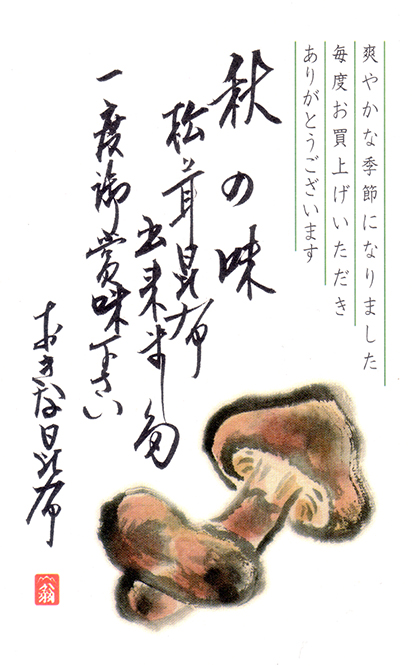 爽やかな季節になりました
毎度お買上げいただき
ありがとうございます
秋の味
松茸昆布
出来ました
一度御賞味下さい
おきな昆布
翁